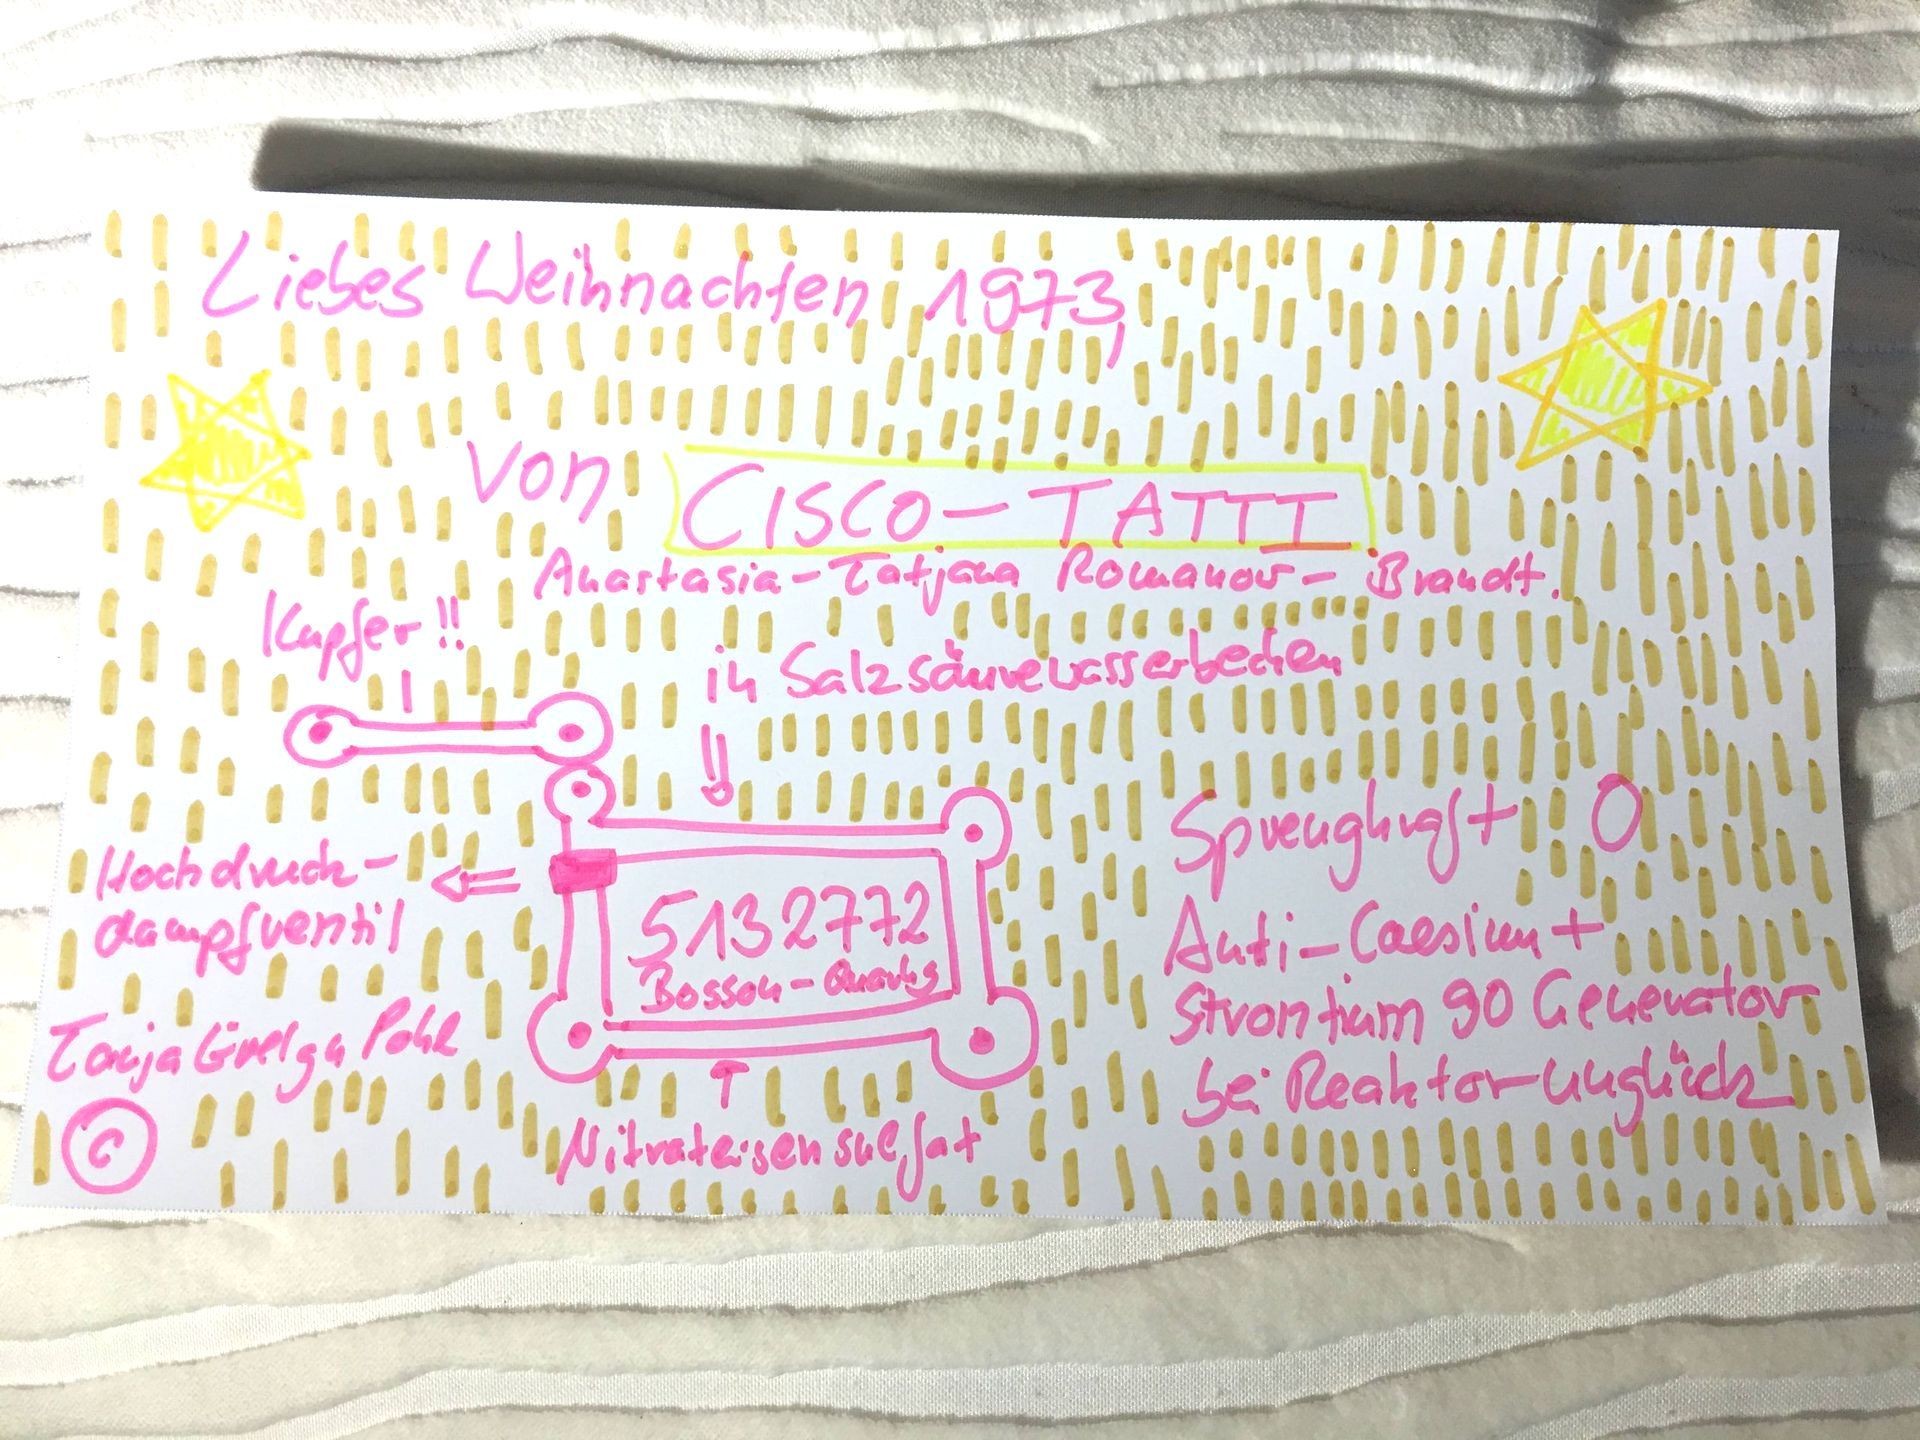 Liebes Weihnachten 1973,
von CISCO-TATTI
Anastasia-Tatjana Romanow-Brandt.
Kupfer!!
in Salzsäurewasserbecken
Hochdruck-
dampfventil
5132772
Bosson-Quarks
Sprengkraft 0
Anti-Caesium +
Strontium 90 Generator
bei Reaktor-Unglück
Tanja Pohl
©
Nitrateisensulfat